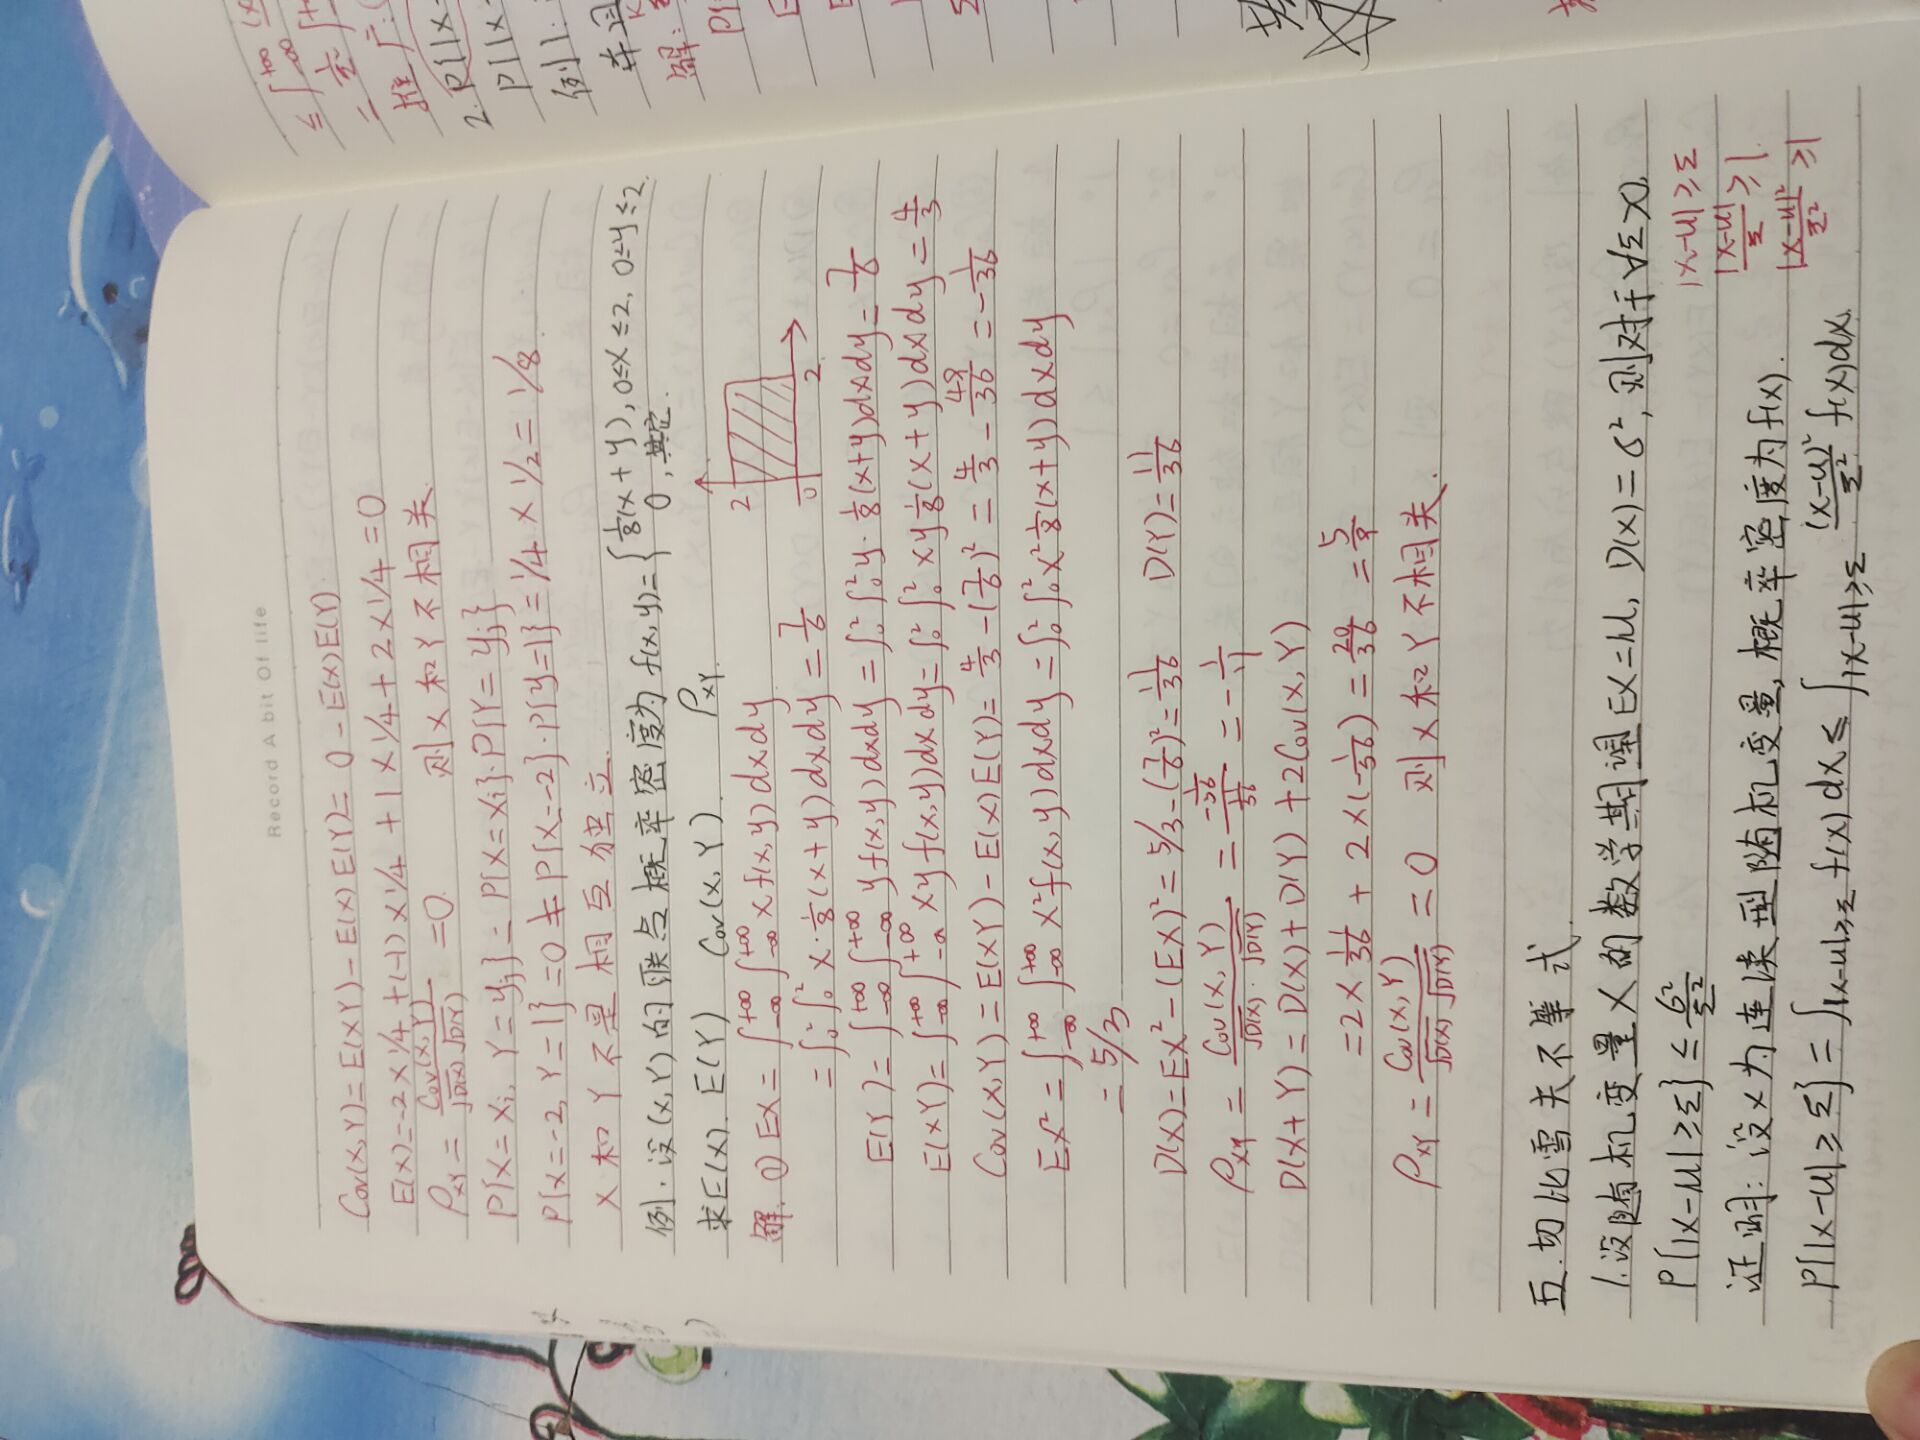 Record A bit Of life
Cov(X,Y)=E(XY)-E(X)E(Y)=0-E(X)E(Y)
E(X)=-2×1/4+(-1)×1/4+1×1/4+2×1/4=0
ρxy=Cov(X,Y)/√D(X)√D(Y)=0. 则X和Y不相关.
P{X=xi,Y=yj}=P{X=xi}·P{Y=yj}
P{X=-2,Y=1}=0≠P{X=-2}·P{Y=1}=1/4×1/2=1/8.
X和Y不是相互独立.
例.设(X,Y)的联合概率密度为f(x,y)={1/8(x+y),0≤x≤2,0≤y≤2. 0,其它.
求E(X).E(Y) Cov(X,Y). ρXY.
2
0 2
解.①EX=∫-∞+∞∫-∞+∞xf(x,y)dxdy
=∫0²∫0²x·1/8(x+y)dxdy=7/6
E(Y)=∫-∞+∞∫-∞+∞yf(x,y)dxdy=∫0²∫0²y·1/8(x+y)dxdy=7/6
E(XY)=∫-∞+∞∫-∞+∞xyf(x,y)dxdy=∫0²∫0²xy1/8(x+y)dxdy=4/3
Cov(X,Y)=E(XY)-E(X)E(Y)=4/3-(7/6)²=4/3-49/36=-1/36
EX²=∫-∞+∞∫-∞+∞x²f(x,y)dxdy=∫0²∫0²x²1/8(x+y)dxdy
=5/3
D(X)=EX²-(EX)²=5/3-(7/6)²=11/36 D(Y)=11/36
ρXY=Cov(X,Y)/√D(X)·√D(Y)=-1/36/11/36=-1/11
D(X+Y)=D(X)+D(Y)+2Cov(X,Y)
=2×11/36+2×(-1/36)=20/36=5/9
ρXY=Cov(X,Y)/√D(X)√D(Y)=0 则X和Y不相关.
五.切比雪夫不等式
1.设随机变量X的数学期望EX=μ,D(X)=σ²,则对于∀ε>0.
P{|X-μ|≥ε}≤σ²/ε²
|X-μ|≥ε
|X-μ|/ε≥1.
|X-μ|²/ε²≥1
证明:设X为连续型随机变量,概率密度为f(x).
P{|X-μ|≥ε}=∫|x-μ|≥ε f(x)dx≤∫|x-μ|≥ε (x-μ)²/ε² f(x)dx.
≤∫-∞+∞
推广:
2.P{|X-
P{|X-
例1:
解: